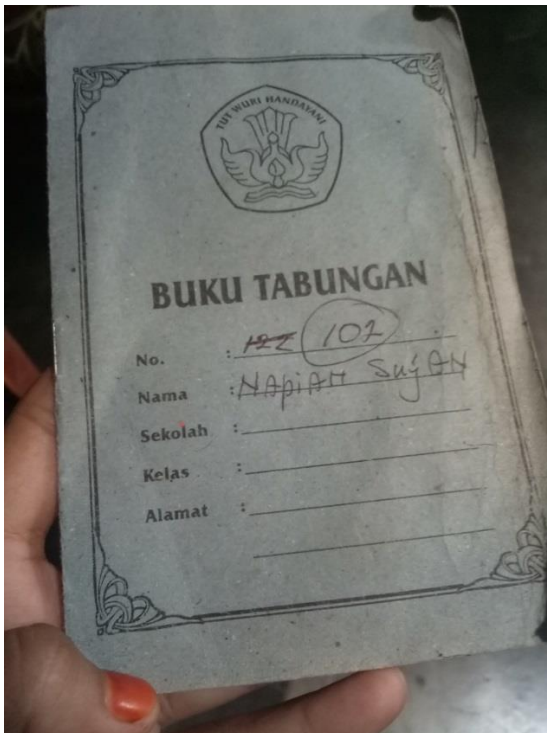 TUT WURI HANDAYANI
BUKU TABUNGAN
No. : 122 102
Nama : NApiAH SuyAN
Sekolah :
Kelas :
Alamat :